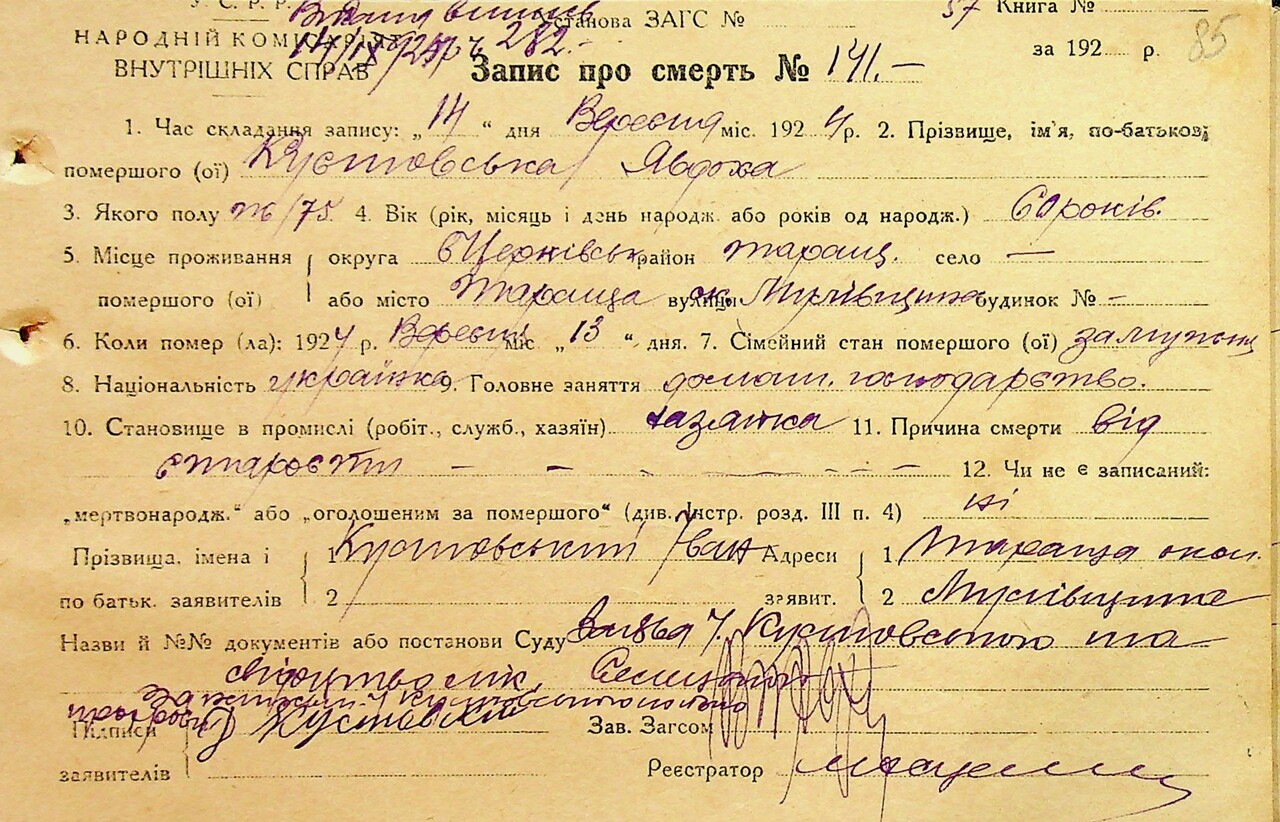 У. С. Р. Р. Установа ЗАГС № 57 Книга №
НАРОДНІЙ КОМІСАРІЯТ 14/IX/25 р. ч. 282.- за 192 р. 85
ВНУТРІШНІХ СПРАВ Запис про смерть № 141.—
1. Час складання запису: „14“ дня Вересня міс. 1924 р. 2. Прізвище, ім'я, по-батькові
помершого (ої) Кустовська Явдоха
3. Якого полу ж/75. 4. Вік (рік, місяць і день народж. або років од народж.) 60 років.
5. Місце проживання округа БЦерківськ район таращ. село —
помершого (ої) або місто Тараща вулиця ок. Мусівщина будинок № -
6. Коли помер (ла): 1924 р. Вересня міс „13“ дня. 7. Сімейний стан помершого (ої) замужня
8. Національність українка 9. Головне заняття домаш. господарство.
10. Становище в промислі (робіт., служб., хазяїн) хазяйка 11. Причина смерти від
старости — — — — — — — 12. Чи не є записаний:
„мертвонародж.“ або „оголошеним за помершого“ (див. Інстр. розд. III п. 4) ні
Прізвища, імена і 1 Кустовський Іван Адреси 1 Тараща окол.
по батьк. заявителів 2 заявит. 2 Мусівщина
Назви й №№ документів або постанови Суду Заява Кустовського та
свідоцтво лік.
Кустовського
Підписи Кустовский Зав. Загсом
заявителів Реєстратор